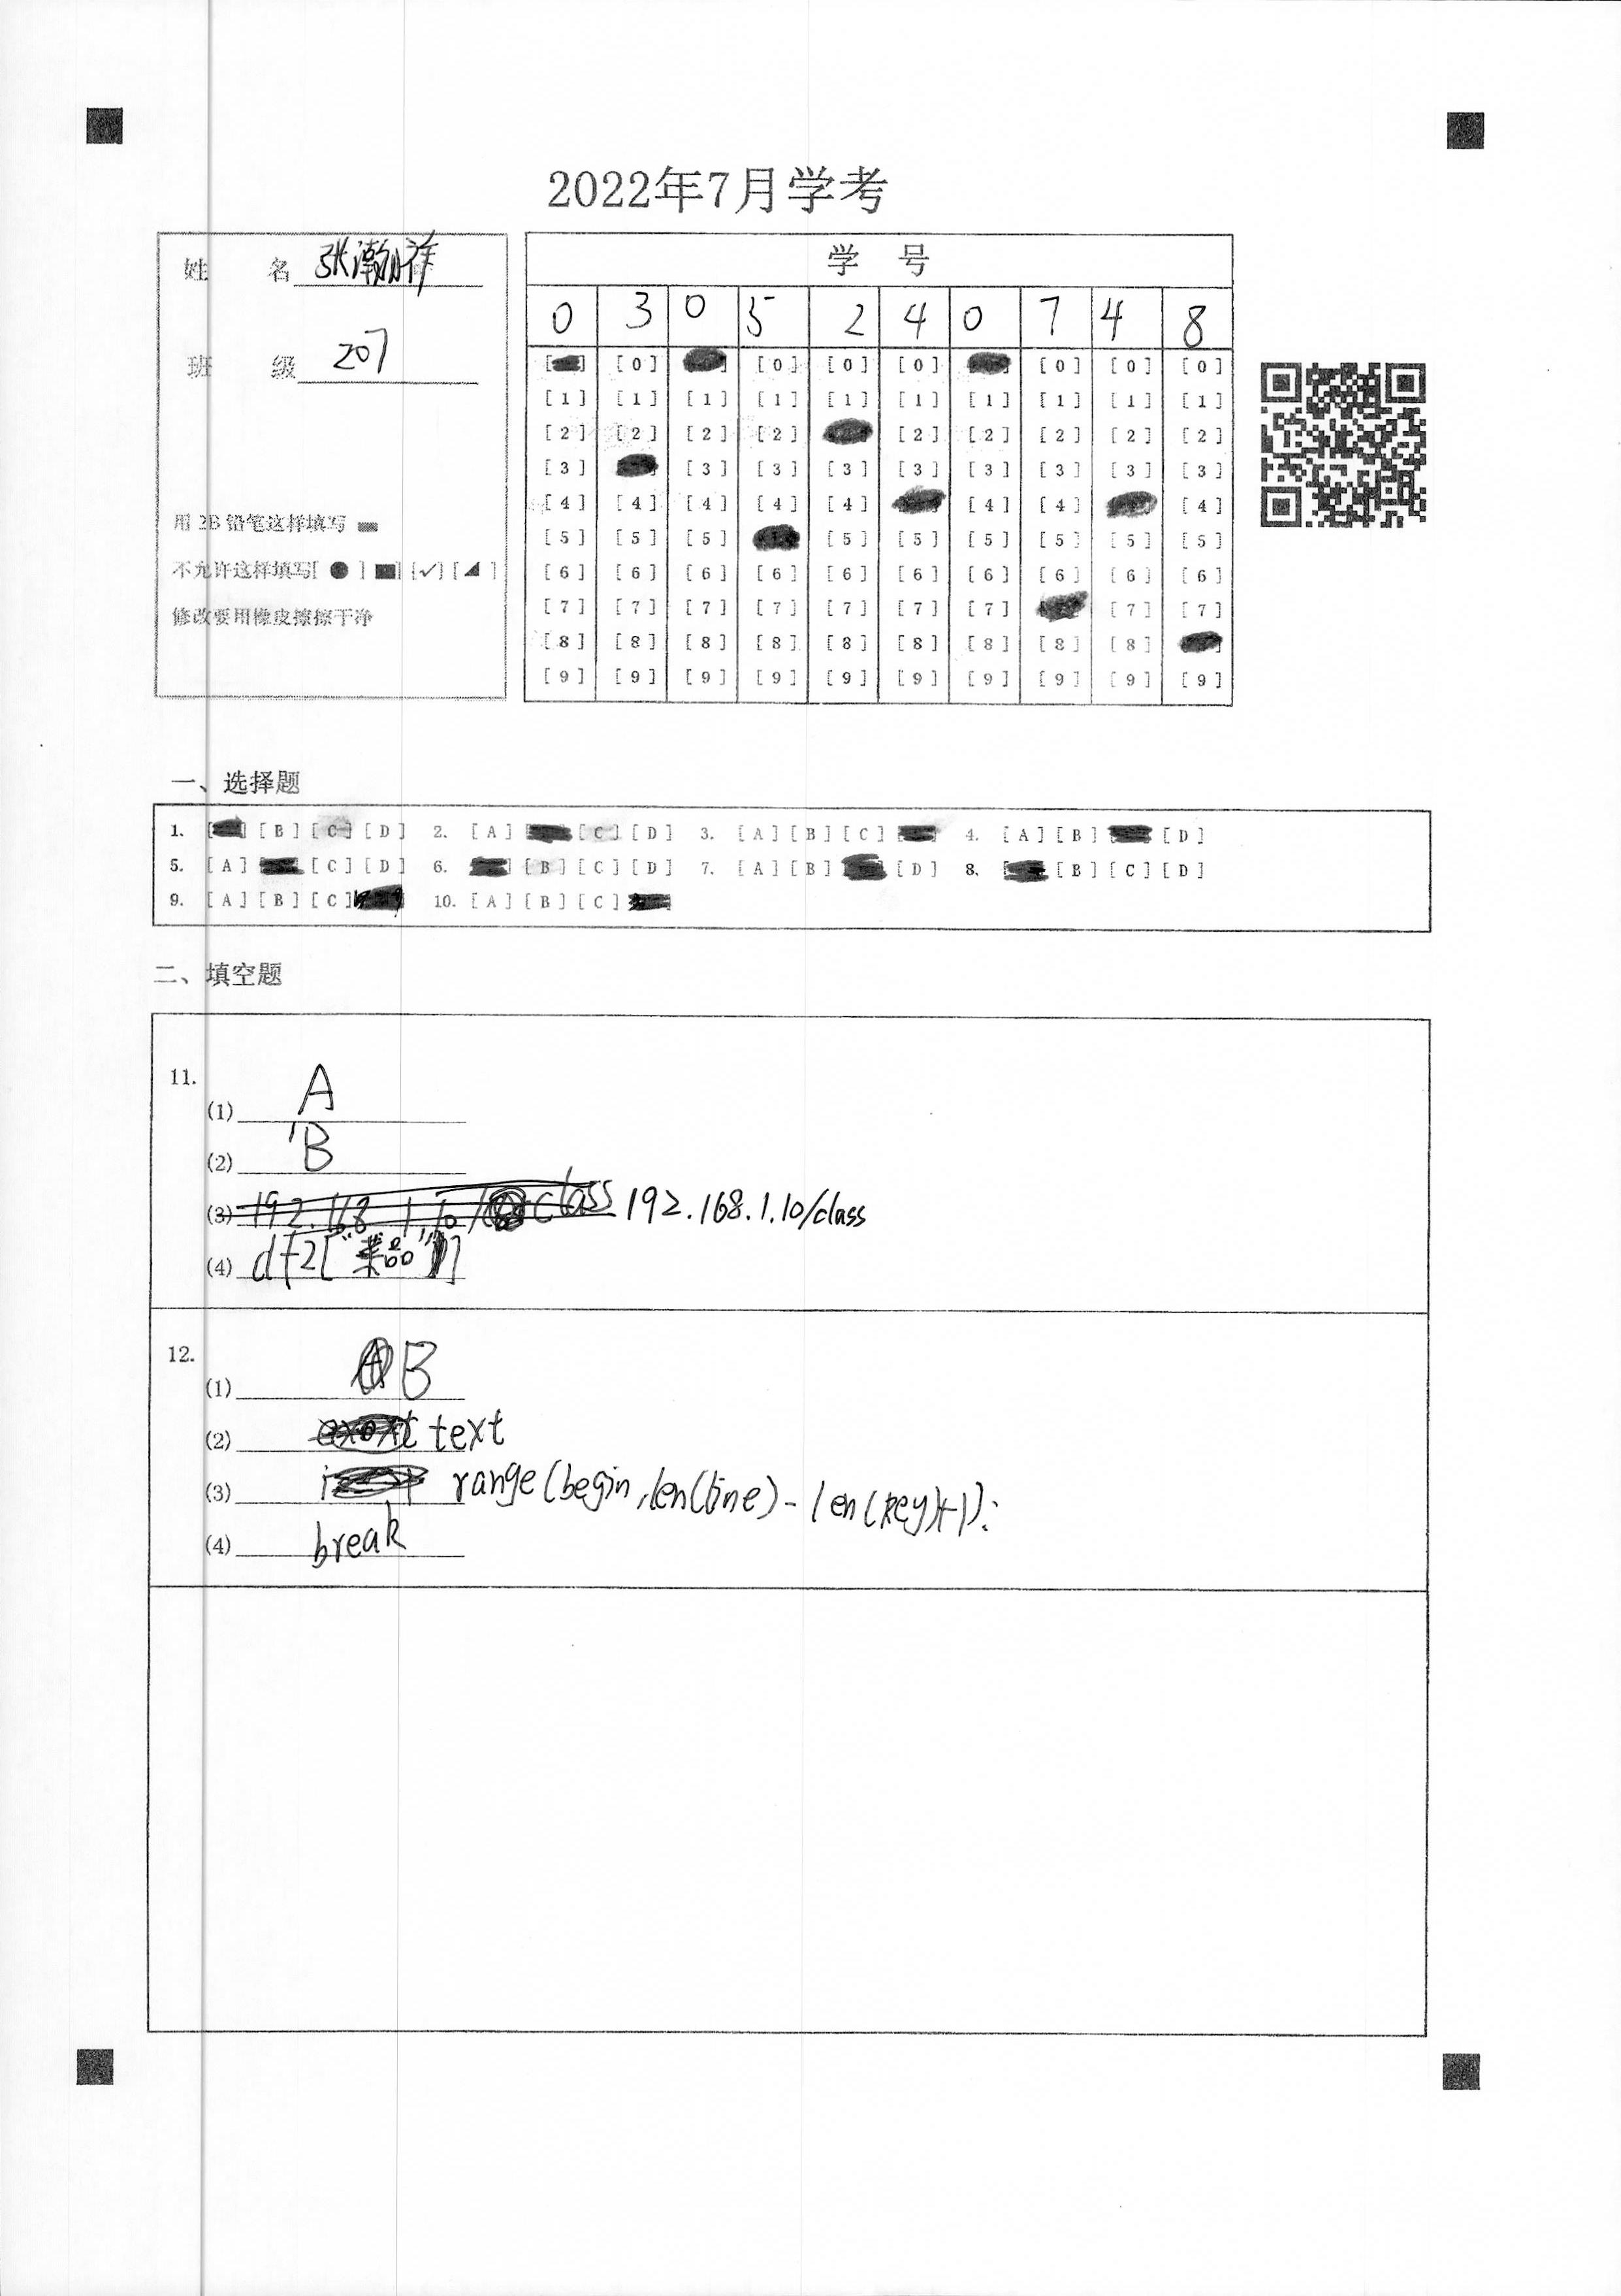 2022年7月学考
姓 名 张瀚祥
班 级 207
用 2B 铅笔这样填写
不允许这样填写[ ● ] [✓] [ ]
修改要用橡皮擦擦干净
学 号
0 3 0 5 2 4 0 7 4 8
[0] [0] [0] [0] [0] [0]
[1] [1] [1] [1] [1] [1] [1] [1] [1] [1]
[2] [2] [2] [2] [2] [2] [2] [2] [2]
[3] [3] [3] [3] [3] [3] [3] [3] [3]
[4] [4] [4] [4] [4] [4] [4] [4]
[5] [5] [5] [5] [5] [5] [5] [5] [5]
[6] [6] [6] [6] [6] [6] [6] [6] [6] [6]
[7] [7] [7] [7] [7] [7] [7] [7] [7]
[8] [8] [8] [8] [8] [8] [8] [8] [8]
[9] [9] [9] [9] [9] [9] [9] [9] [9] [9]
一、选择题
1. [B] [C] [D] 2. [A] [C] [D] 3. [A] [B] [C] 4. [A] [B] [D]
5. [A] [C] [D] 6. [B] [C] [D] 7. [A] [B] [D] 8. [B] [C] [D]
9. [A] [B] [C] 10. [A] [B] [C]
二、填空题
11.
(1) A
(2) B
(3) 192.168.1.10/class
(4) df2["菜品"]
12.
(1) B
(2) text
(3) range(begin,len(line)-len(key)+1):
(4) break